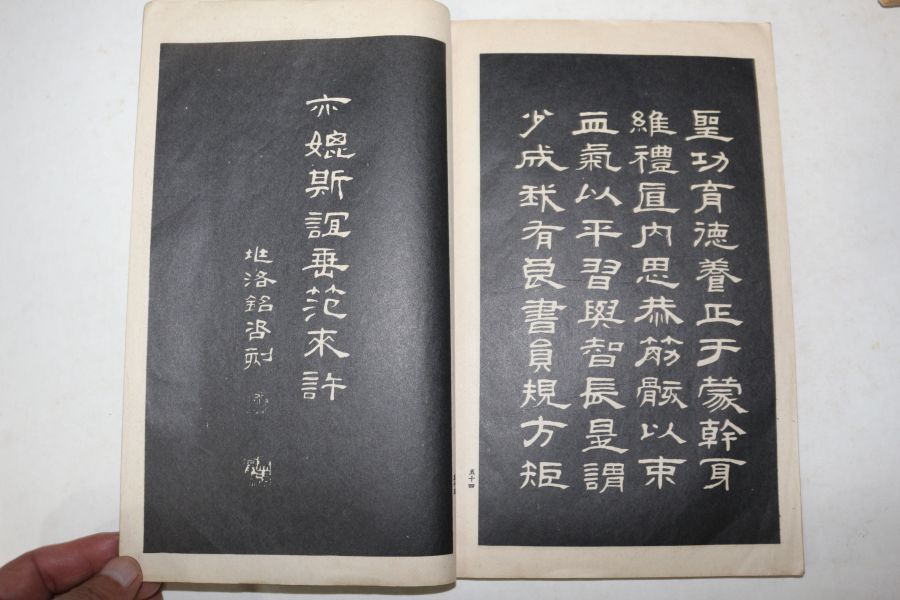 聖功育德養正于蒙幹身
維禮直内思恭筋骸以束
血氣以平習與智長是謂
少成我有良書員規方矩
五十四
亦媲斯誼垂范來許
洛銘刻